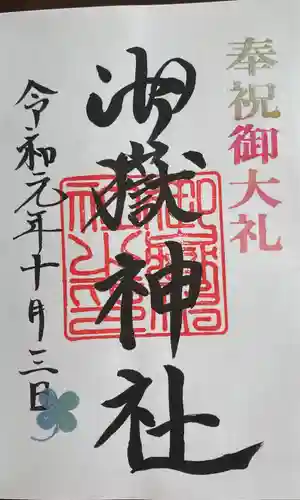 奉祝御大礼
御嶽神社
令和元年十月三日